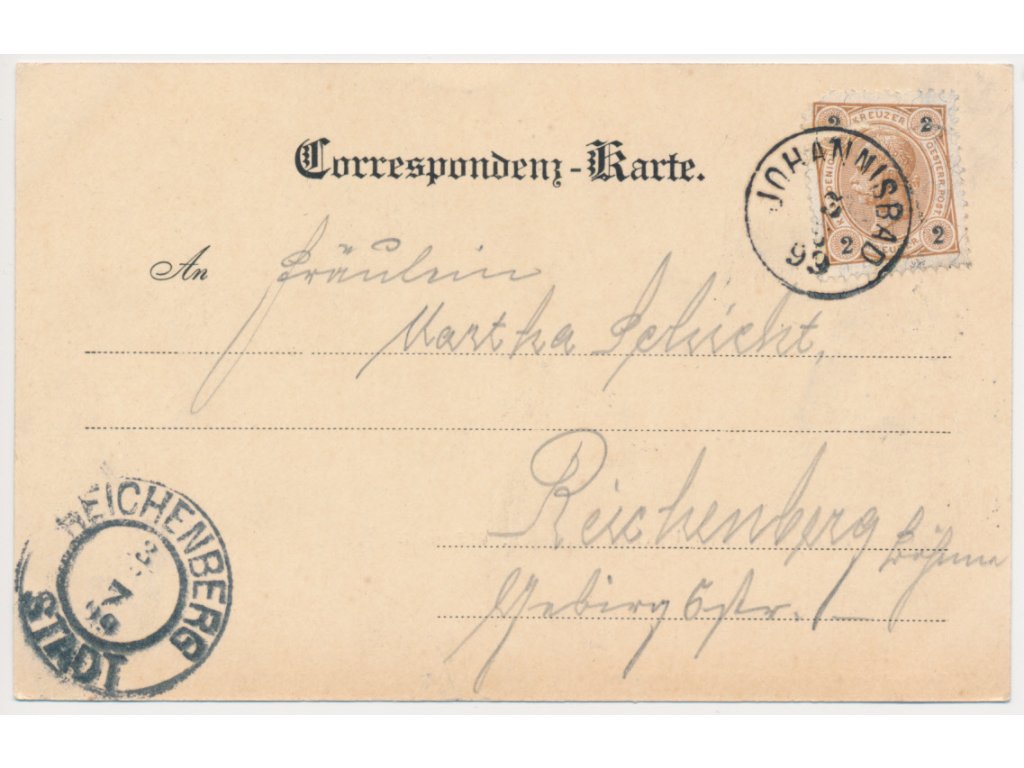 Correspondenz-Karte.
2 KREUZER 2
OESTERR. POST.
2 KREUZER 2
JOHANNISBAD
3
99
An Fräulein
Martha Schicht,
Reichenberg
Böhmen
Gebirgsstr. 1
REICHENBERG
3
7
99
STADT